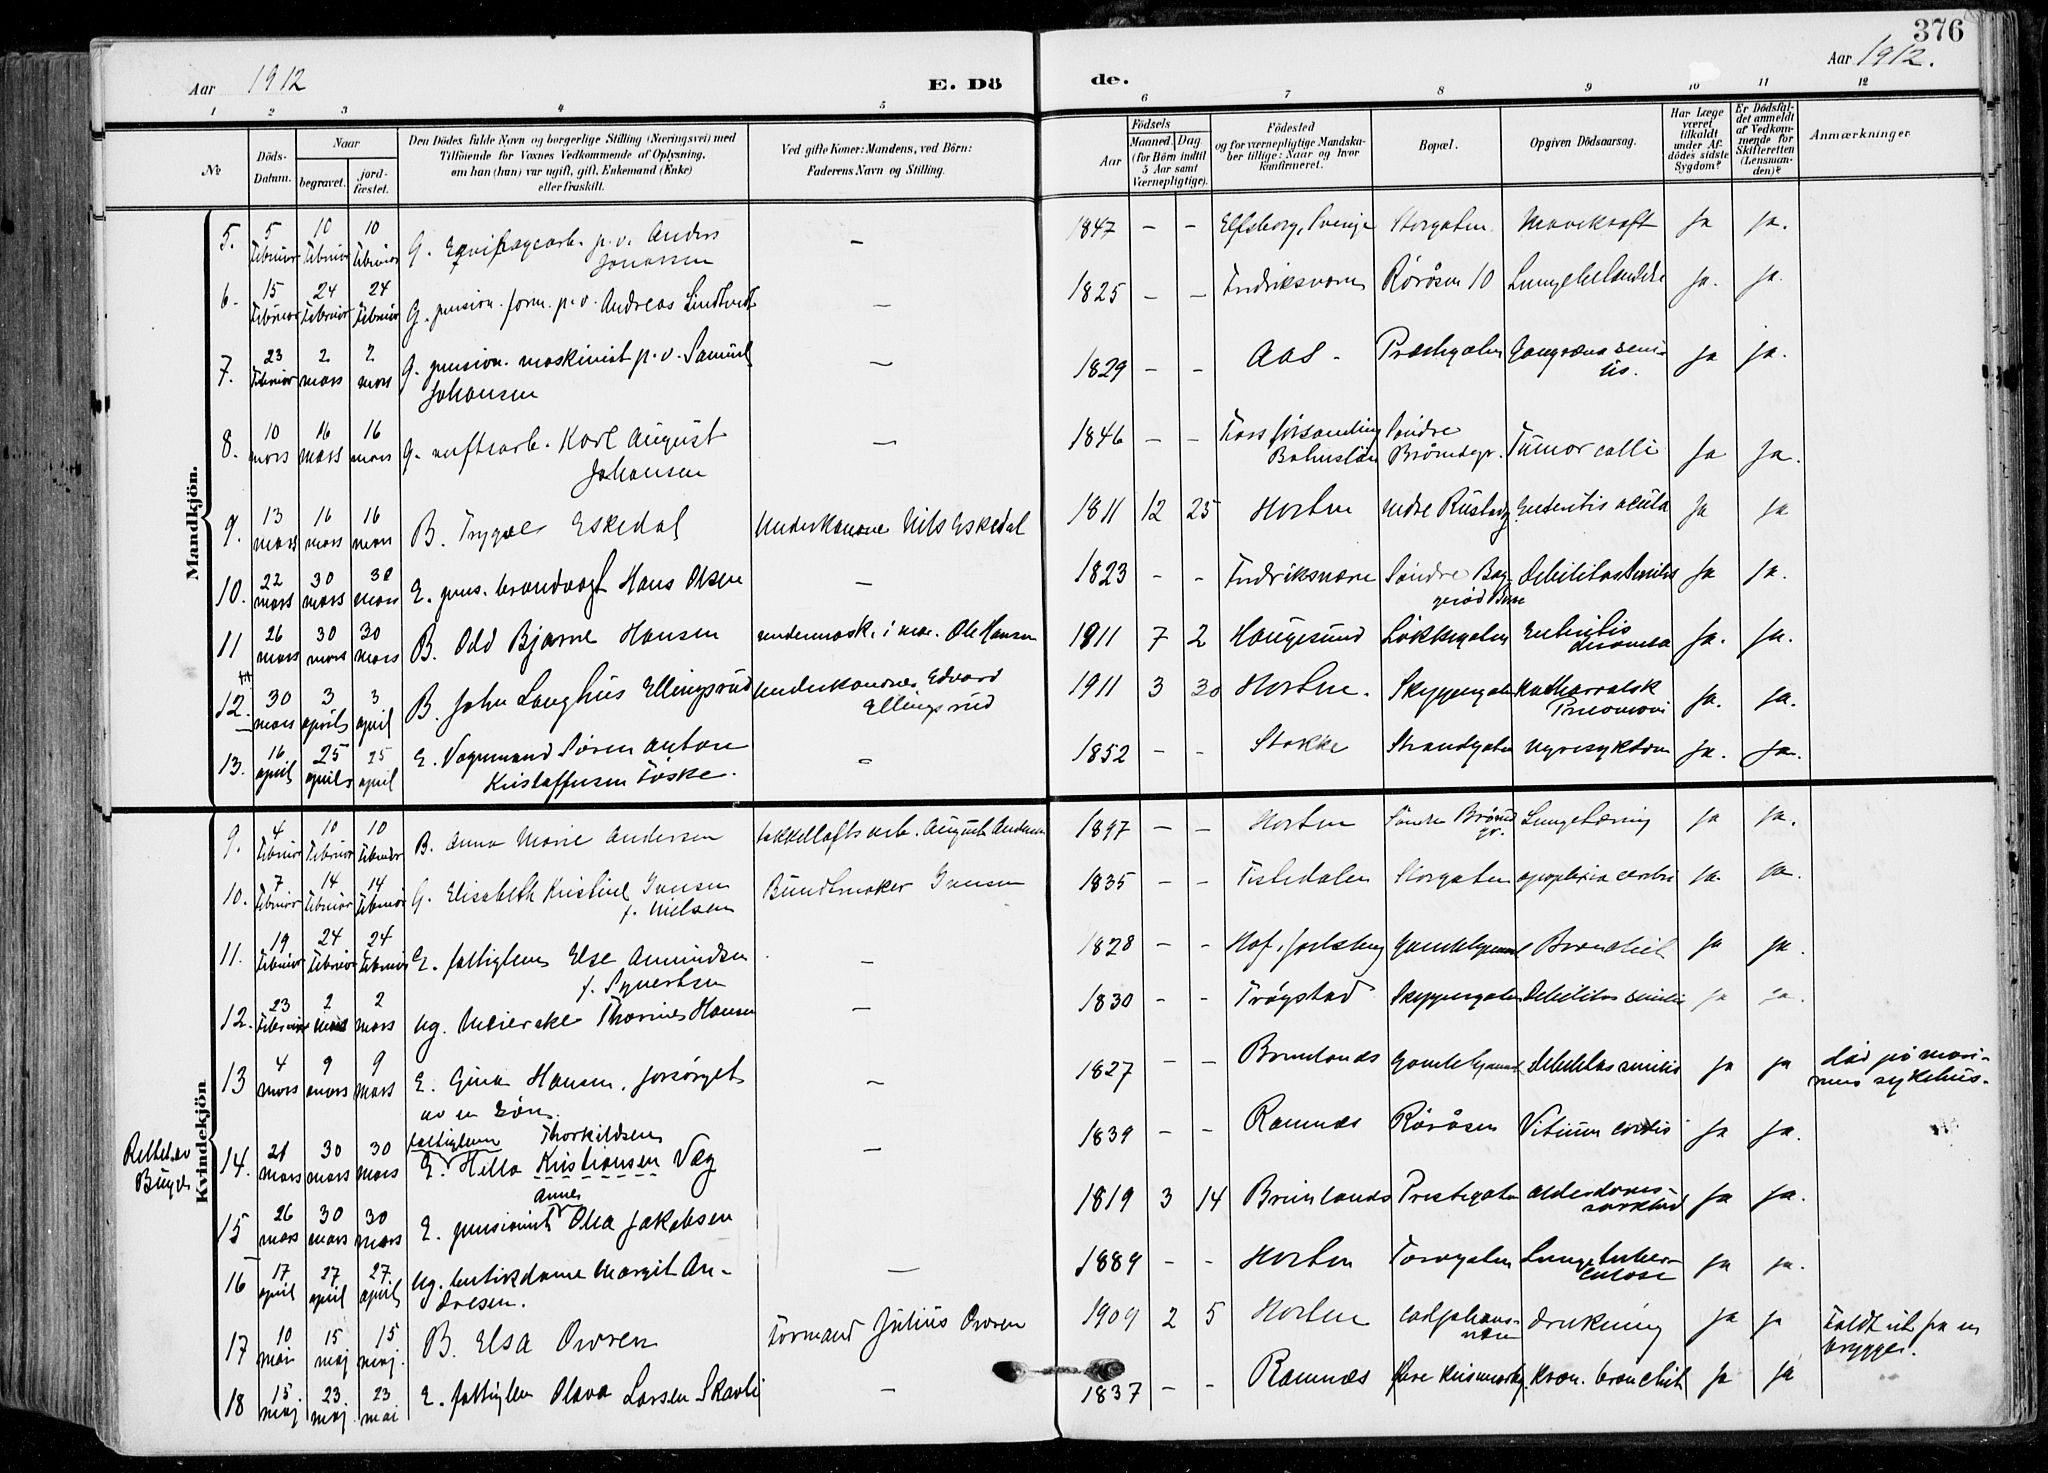 376
Aar 1912
E. Dö de.
Aar 1912.
1 2 3 4 5 6 7 8 9 10 11 12
No
Döds-Datum.
Naar
begravet.
jord-fæstet.
Den Dödes fulde Navn og borgerlige Stilling (Næringsvei) med
Tilföiende for Voxnes Vedkommende af Oplysning,
om han (hun) var ugift, gift, Enkemand (Enke)
eller fraskilt.
Ved gifte Koner: Mandens, ved Börn:
Faderens Navn og Stilling.
Födsels
Aar
Maaned. Dag.
(for Börn indtil
5 Aar samt
Værnepligtige).
Födested
og for værnepligtige Mandska-
ber tillige: Naar og hvor
konfirmeret.
Bopæl.
Opgiven Dödsaarsag.
Har Læge
været
tilkaldt
under Af-
dödes sidste
Sygdom?
Er Dödsfal-
det anmeldt
af Vedkom-
mende for
Skifteretten
(Lensman-
den)?
Anmærkninger
Mandkjön.
5. 5 Februar 10 Februar 10 Februar G. p.v. Anders Jonassen — 1847 — — Elfsborg, Sverige Storgaten Mavekræft Ja ja.
6. 15 Februar 24 Februar 24 Februar G. pension. form. p.v. Andreas Lindtvedt — 1825 — — Fredriksværn Röråsen 10 Lungebetændelse ja. ja.
7. 23 Februar 2 mars 2 mars G. pension. maskinist p.v. Samuel Johansen — 1829 — — Aas Prestegaten Gangræna senilis. ja ja.
8. 10 mars 16 mars 16 mars G. verftsarb. Karl August Johansen — 1846 — — Fors forsamling Bohuslän Söndre Brårudgr. Tumor colli Ja Ja.
9. 13 mars 16 mars 16 mars B. Trygve Eskedal Underkanone Nils Eskedal 1811 12 25 Horten nedre Rustadg Enteritis acuta Ja ja
10. 22 mars 30 mars 30 mars E. pens. brandvagt Hans Olsen — 1823 — — Fredriksværn Söndre Bag- Debilitas senilis Ja ja.
11 26 mars 30 mars 30 mars B. Odd Bjarne Hansen undermask. i mar. Ole Hansen 1911 7 2 Haugesund Løkkegaten Enteritis ja. ja.
12. 30 mars 3 april 3 april B. John Langhus Ellingsrud Underkanoner Edvard Ellingsrud 1911 3 30 Horten. Skippergaten Katharralsk Pneumoni ja. ja.
13. 16 april 25 april 25 april E. Vognmand Sören Anton Kristoffersen Föske. — 1852 — — Stokke Strandgaten Nyresykdom ja. ja.
Kvindekjön
9. 4 Februar 10 Februar 10 Februar B. Anna Marie Andersen takkelloftsarb. August Andersen 1897 — — Horten Söndre Brårud gr. Lungetæring ja ja.
10. 7 Februar 14 Februar 14 Februar G. Elisabeth Kristine Jensen f. Nielsen Buntmaker Jensen 1835 — — Tistedalen Storgaten apoplexia cerebri ja. ja.
11. 19 Februar 24 Februar 24 Februar E. fattiglem Else Amundsen f. Syvertsen — 1828 — — Hof, Jarlsberg Gamlehjemmet Bronchit ja ja.
12. 23 Februar 2 mars 2 mars Ug. Meierske Thorine Hansen — 1830 — — Trögstad Skippergaten Debilitas senilis ja ja.
13 4 mars 9 mars 9 mars E. Gina Hansen, forsörget av en sön. — 1827 — — Brunlanes Gamlehjemmet Debilitas senilis ja ja död på mari-
nens sykehus.
Rettet av Byges 14. 21 mars 30 mars 30 mars fattiglem Thorkildsen
E. Hella Kristiansen Væg — 1839 — — Ramnæs Röråsen Vitium cordis ja ja.
15 26 mars 30 mars 30 mars E. pensionist Anne Olea Jakobsen 1819 3 14 Brunlanes Prestegaten Alderdoms-
svakhed ja ja.
16 17 april 27 april 27 april Ug. butikdame Margit An-
dresen. — 1889 — — Horten Torvgaten Lungetuber-
culose ja ja.
17 10 mai 15 maj 15 maj. B. Elsa Owren Formand Julius Owren 1909 2 5 Horten Drukning ja ja Faldt ut fra en
brygge.
18 15 maj 23 maj 23 mai E. fattiglem Olava Larsen Skavli — 1837 — — Ramnæs kron. bronchit ja ja